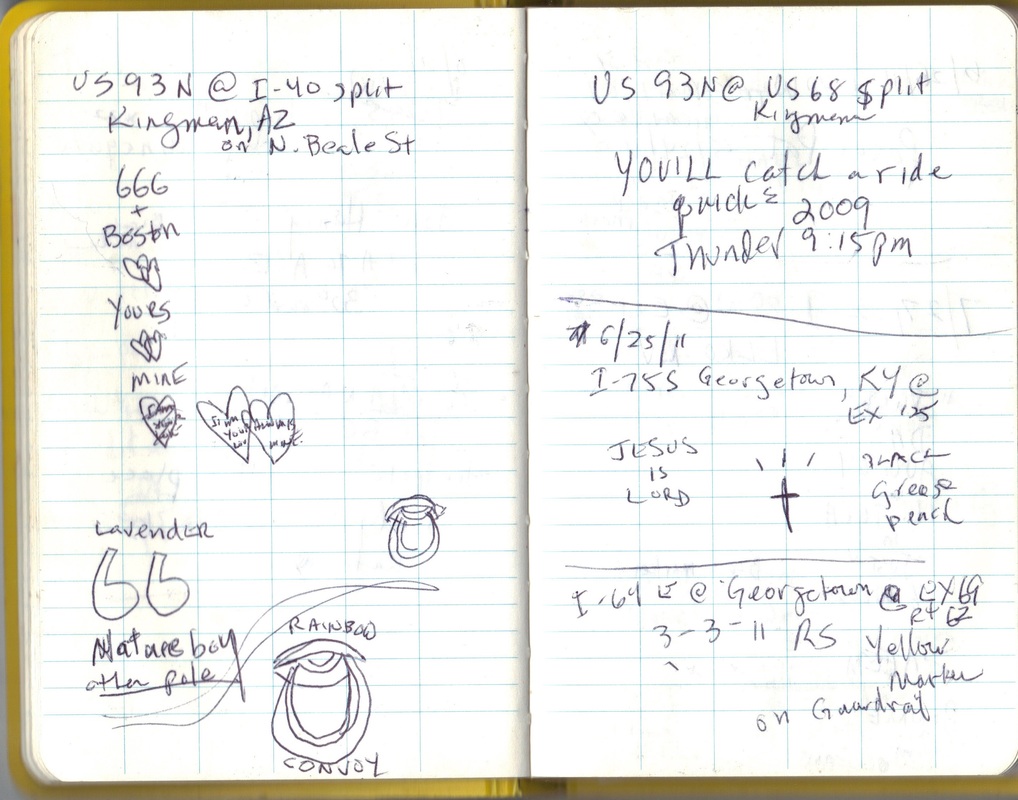 US 93N @ I-40 split
Kingman, AZ
on N. Beale St
666
+
Boston
YOURS
MINE
Lavender
66
Nature boy
other pole
RAINBOW
CONVOY
US 93N @ US 68 split
Kingman
YOU'LL catch a ride
quick
2009
Thunder 9:15pm
6/25/11
I-75S Georgetown, KY @
EX 125
JESUS
IS
LORD
BLACK
Grease
pencil
I-64 E @ Georgetown @ EX 69
Rt 62
3-3-11 RS
Yellow
Marker
on Guardrail